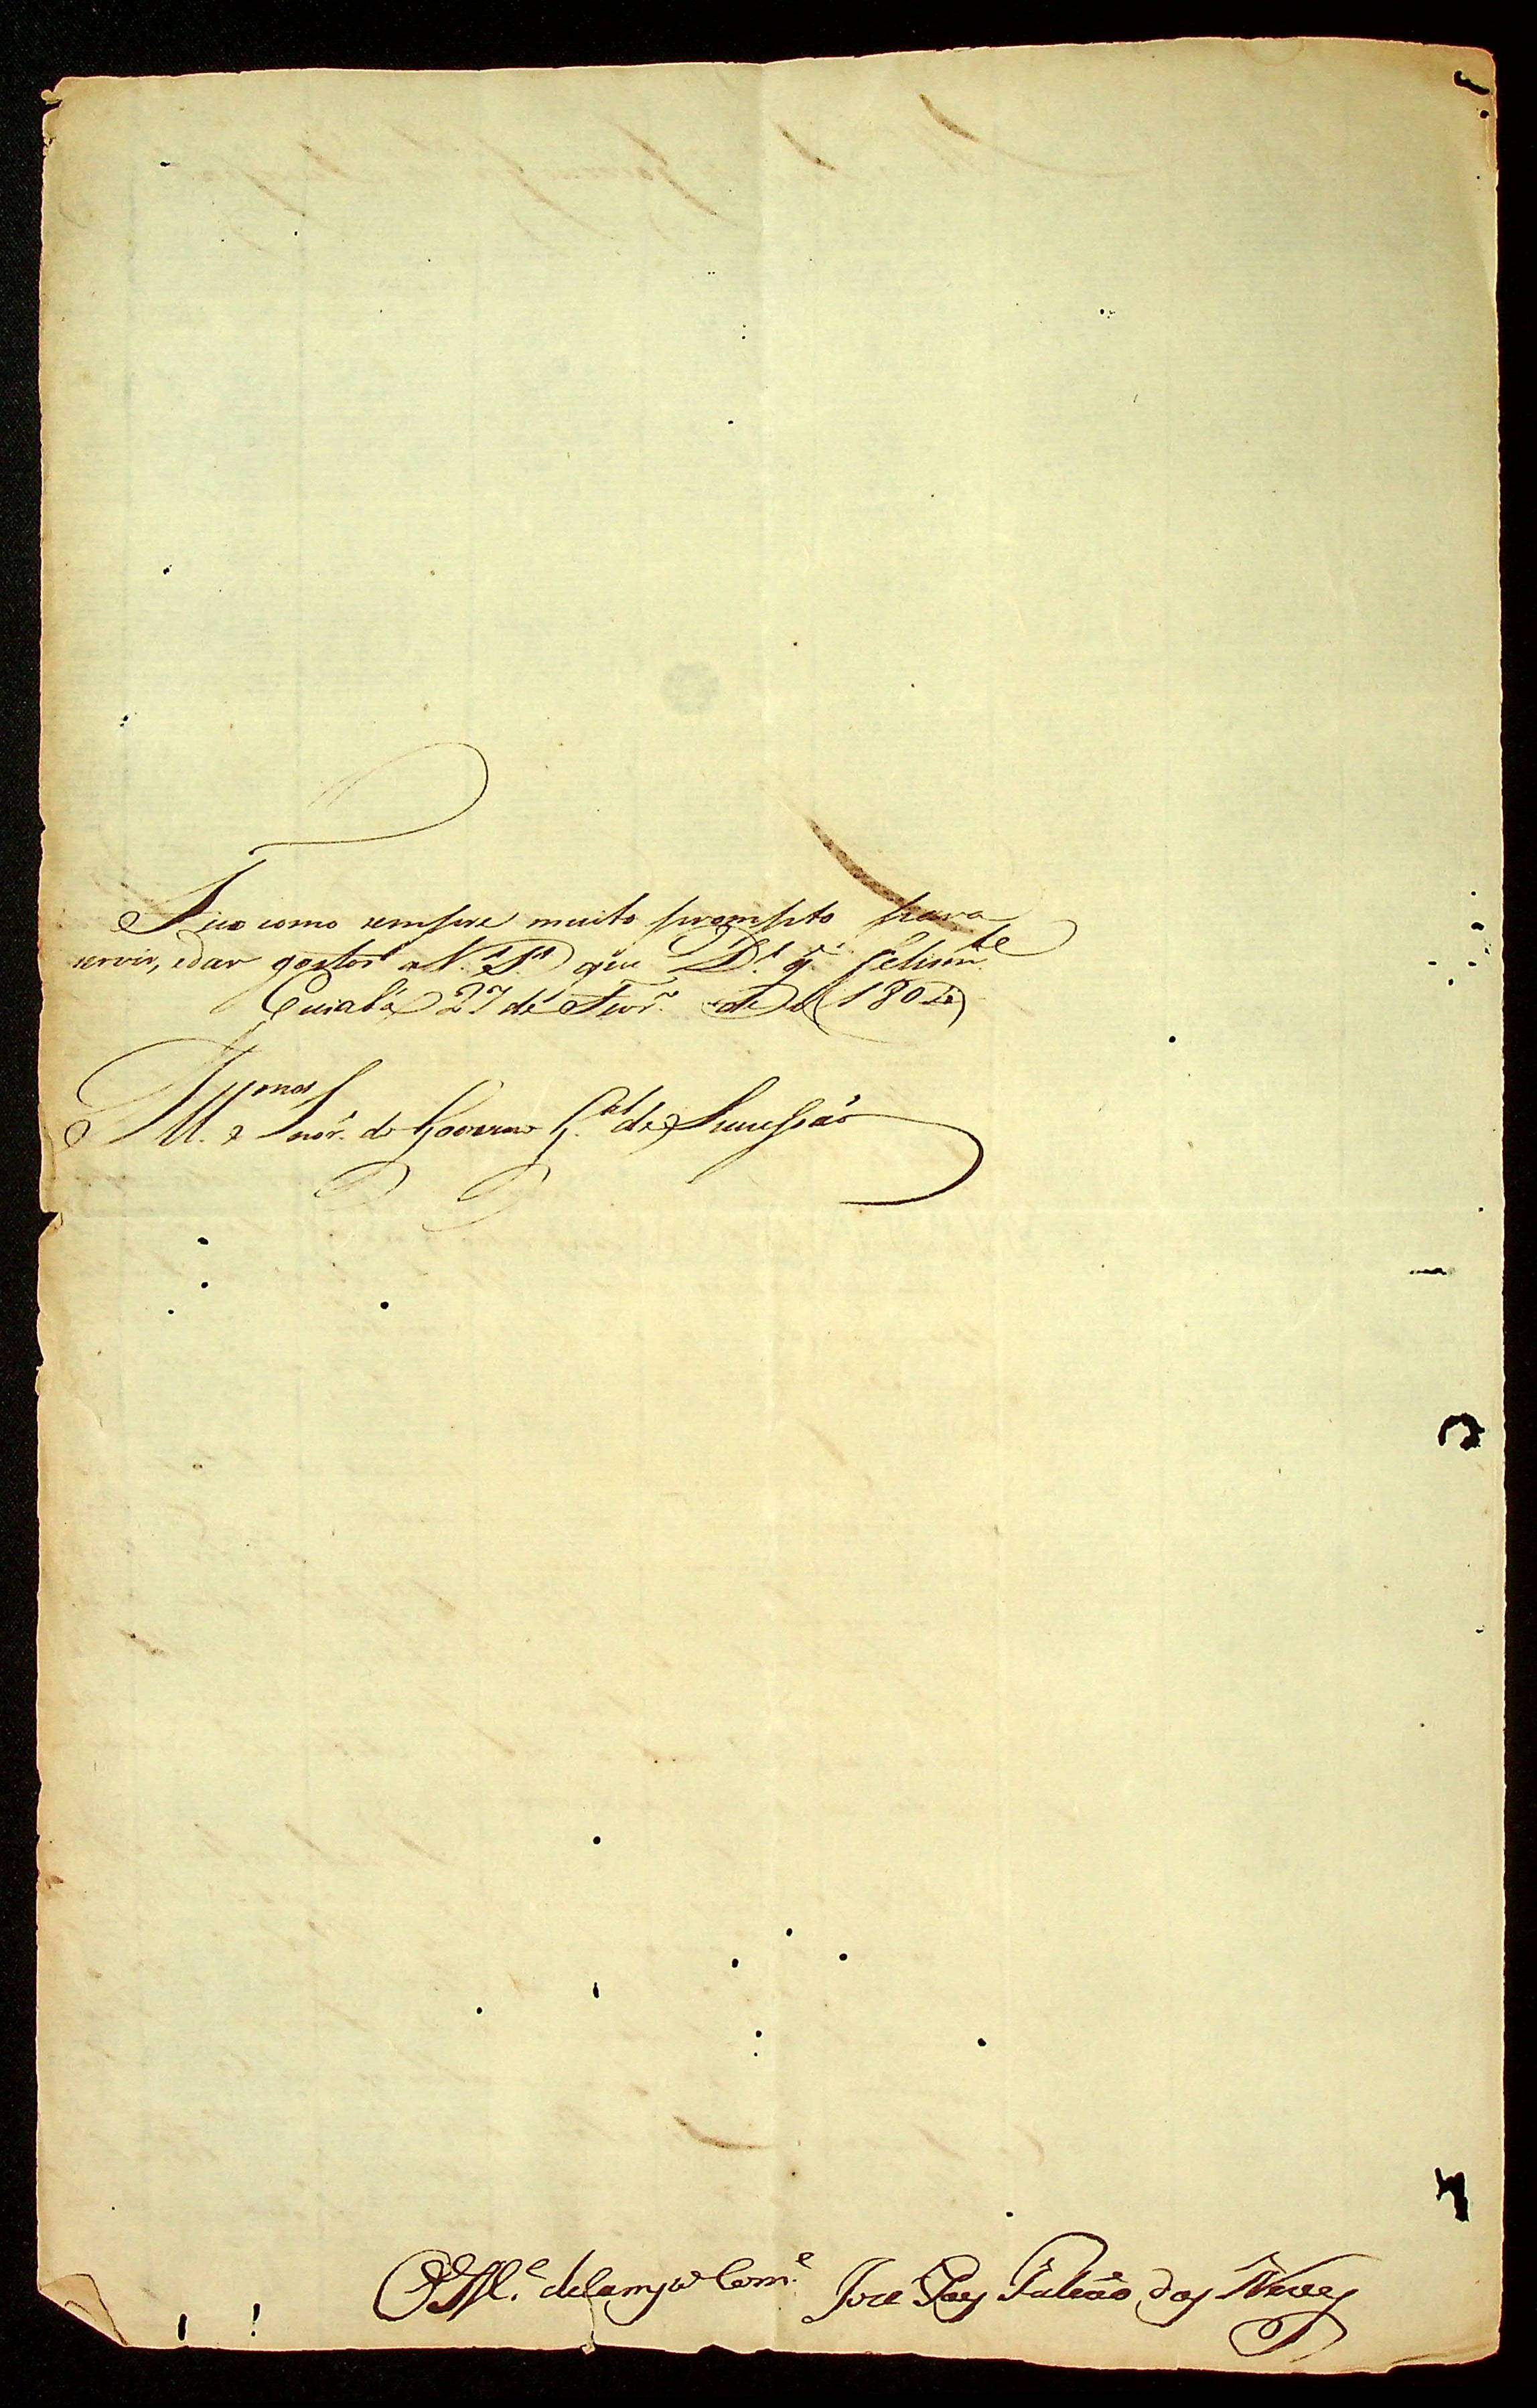 Fico como sempre muito prompto para
servir, e dar gostos a V. S.ª que D.s g.e felism.te
Cuiabá 27 de Fevr.º de 180
Ill.mos Snor.' do Governo G.al de Sucessão
O M.e de Campo Com.e José Paes Falcão das Neves